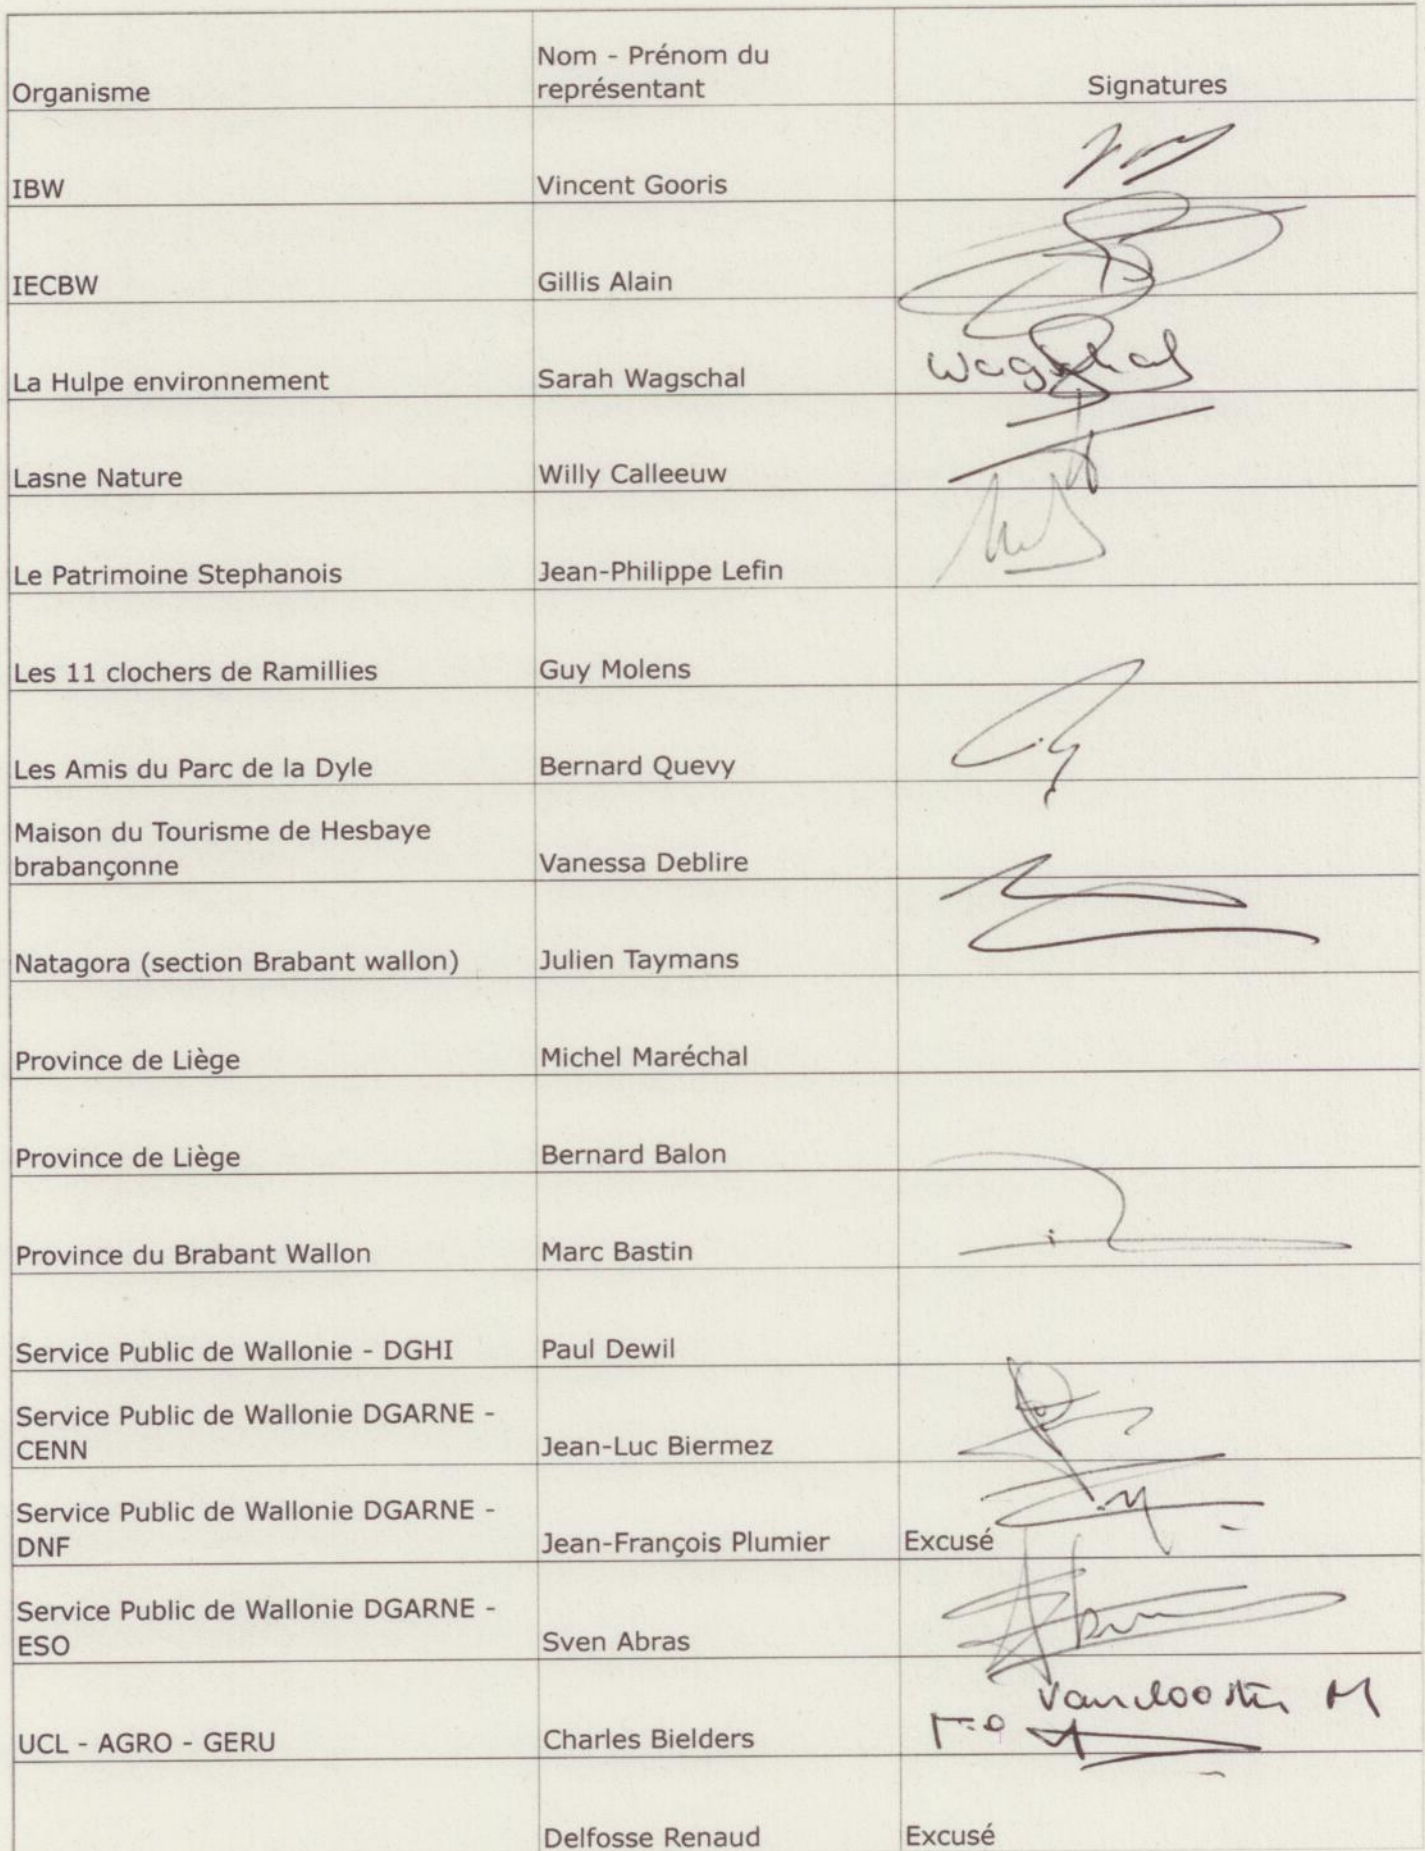 Organisme
Nom - Prénom du
représentant
Signatures
IBW
Vincent Gooris
IECBW
Gillis Alain
La Hulpe environnement
Sarah Wagschal
Wagschal
Lasne Nature
Willy Calleeuw
Le Patrimoine Stephanois
Jean-Philippe Lefin
Les 11 clochers de Ramillies
Guy Molens
Les Amis du Parc de la Dyle
Bernard Quevy
Maison du Tourisme de Hesbaye
brabançonne
Vanessa Deblire
Natagora (section Brabant wallon)
Julien Taymans
Province de Liège
Michel Maréchal
Province de Liège
Bernard Balon
Province du Brabant Wallon
Marc Bastin
Service Public de Wallonie - DGHI
Paul Dewil
Service Public de Wallonie DGARNE -
CENN
Jean-Luc Biermez
Service Public de Wallonie DGARNE -
DNF
Jean-François Plumier
Excusé
Service Public de Wallonie DGARNE -
ESO
Sven Abras
Vanclooster M
UCL - AGRO - GERU
Charles Bielders
Delfosse Renaud
Excusé